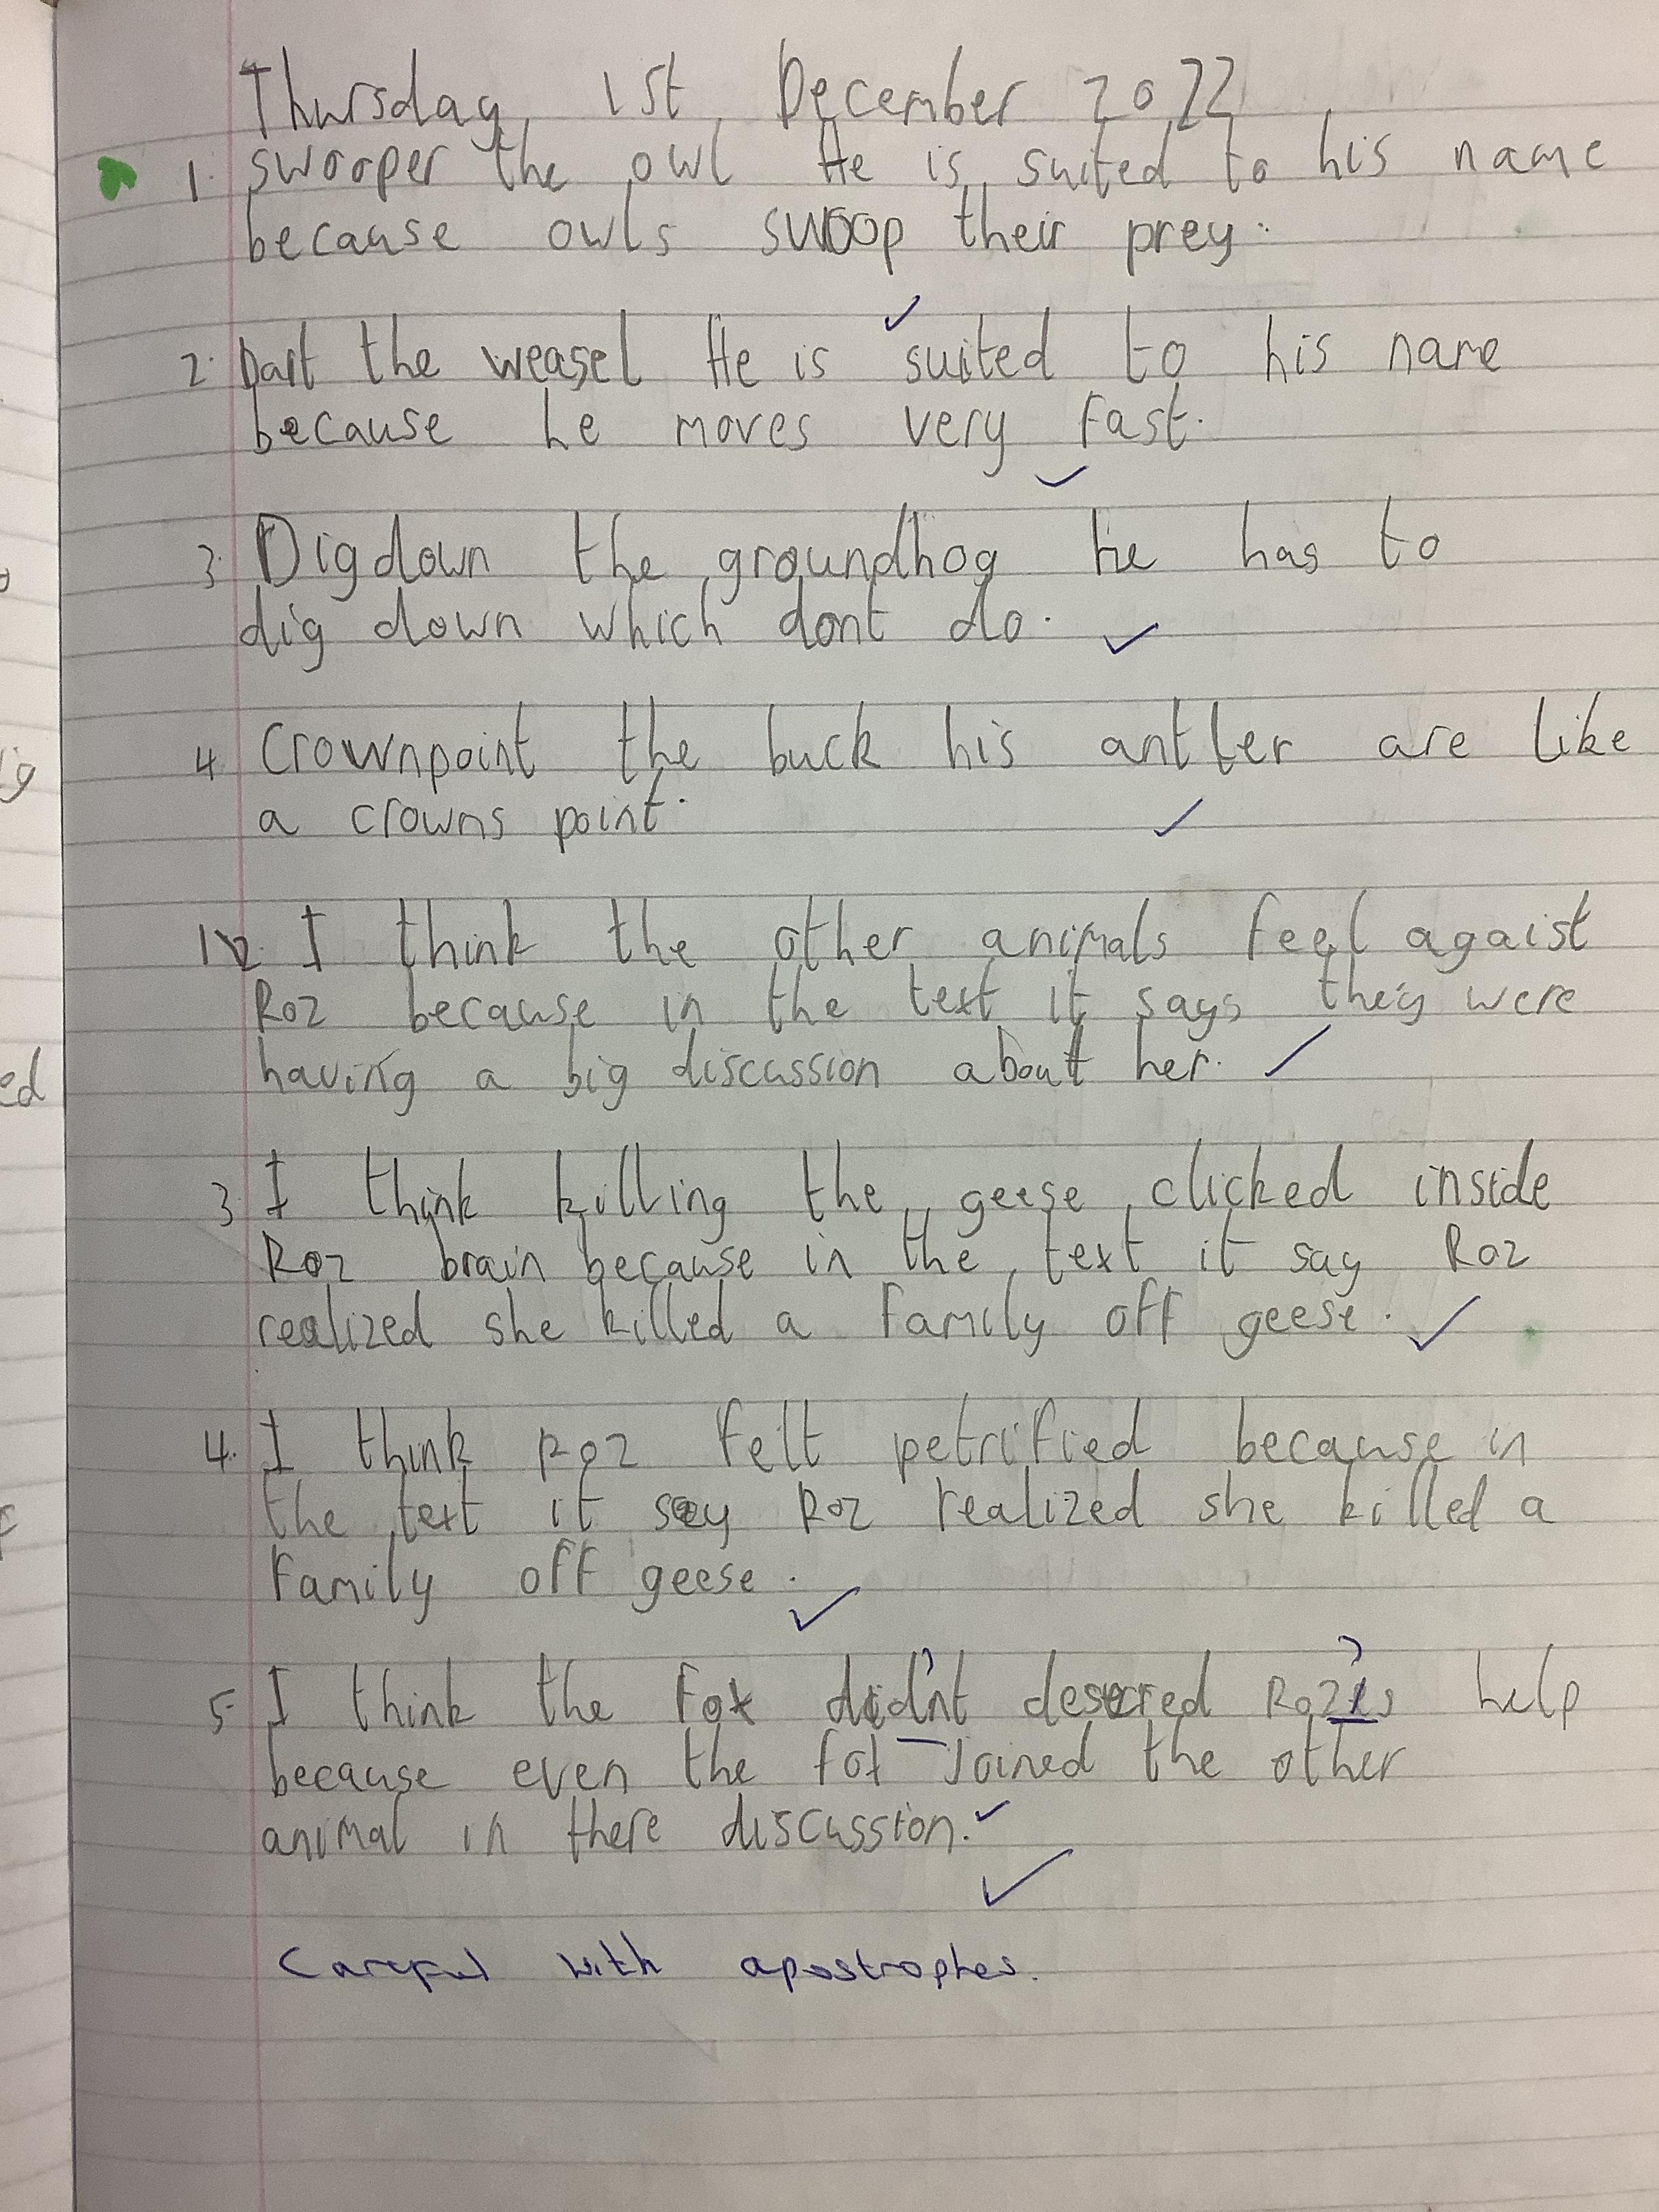 Thursday 1st December 2022
1. Swooper the owl He is suited to his name
because owls swoop their prey.
2. Dart the weasel He is suited to his name
because he moves very fast.
3. Digdown the groundhog he has to
dig down which dont do.
4 Crownpoint the buck his antler are like
a crowns point.
12. I think the other animals feel agaist
Roz because in the text it says they were
having a big discussion about her.
3 I think killing the geese clicked inside
Roz brain because in the text it say Roz
realized she killed a family off geese.
4. I think Roz felt petrified because in
the text it say Roz realized she killed a
family off geese.
5. I think the fox didn't desered Roz's help
because even the fox joined the other
animal in there discussion.
Careful with apostrophes.